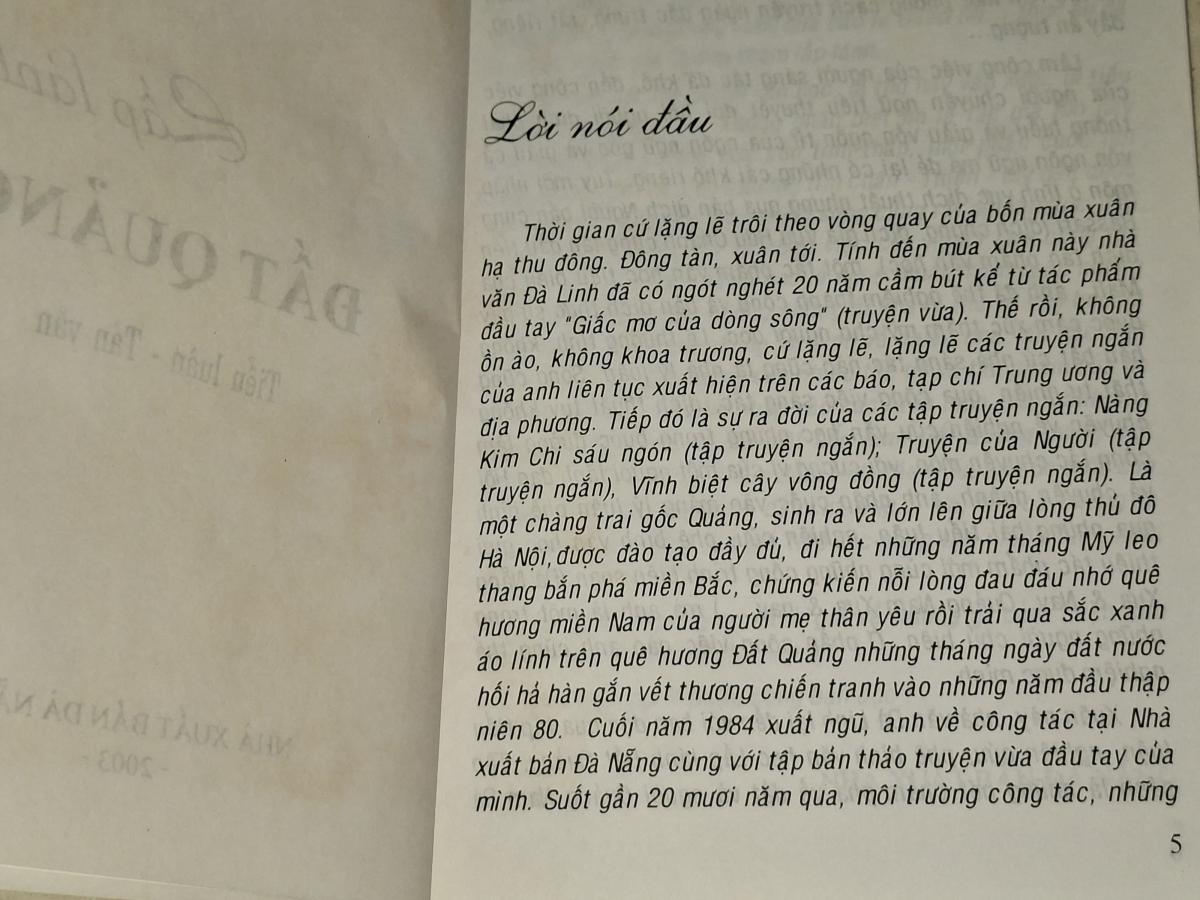 Lời nói đầu
Thời gian cứ lặng lẽ trôi theo vòng quay của bốn mùa xuân
hạ thu đông. Đông tàn, xuân tới. Tính đến mùa xuân này nhà
văn Đà Linh đã có ngót nghét 20 năm cầm bút kể từ tác phẩm
đầu tay "Giấc mơ của dòng sông" (truyện vừa). Thế rồi, không
ồn ào, không khoa trương, cứ lặng lẽ, lặng lẽ các truyện ngắn
của anh liên tục xuất hiện trên các báo, tạp chí Trung ương và
địa phương. Tiếp đó là sự ra đời của các tập truyện ngắn: Nàng
Kim Chi sáu ngón (tập truyện ngắn); Truyện của Người (tập
truyện ngắn), Vĩnh biệt cây vông đồng (tập truyện ngắn). Là
một chàng trai gốc Quảng, sinh ra và lớn lên giữa lòng thủ đô
Hà Nội,được đào tạo đầy đủ, đi hết những năm tháng Mỹ leo
thang bắn phá miền Bắc, chứng kiến nỗi lòng đau đáu nhớ quê
hương miền Nam của người mẹ thân yêu rồi trải qua sắc xanh
áo lính trên quê hương Đất Quảng những tháng ngày đất nước
hối hả hàn gắn vết thương chiến tranh vào những năm đầu thập
niên 80. Cuối năm 1984 xuất ngũ, anh về công tác tại Nhà
xuất bản Đà Nẵng cùng với tập bản thảo truyện vừa đầu tay của
mình. Suốt gần 20 mươi năm qua, môi trường công tác, những
5